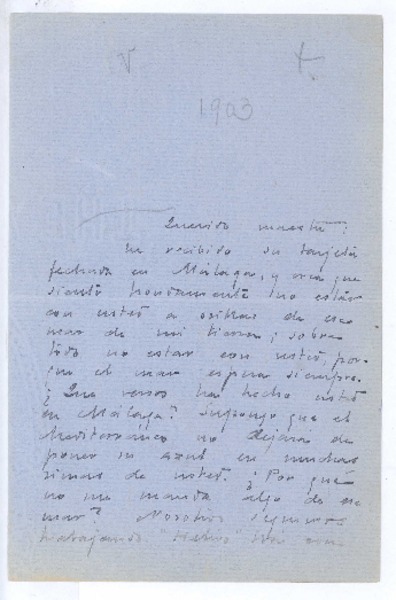 1903
Querido maestro:
He recibido su tarjeta
fechada en Málaga, y crea que
siento hondamente no estar
con usted a orillas de ese
mar de mi tierra; sobre
todo no estar con usted, por-
que el mar espera siempre.
¿Que versos ha hecho usted
en Málaga? Supongo que el
Mediterráneo no dejará de
poner su azul en muchas
rimas de usted. ¿Por qué
no me manda algo de ese
mar? Nosotros seguimos
trabajando "Helios"